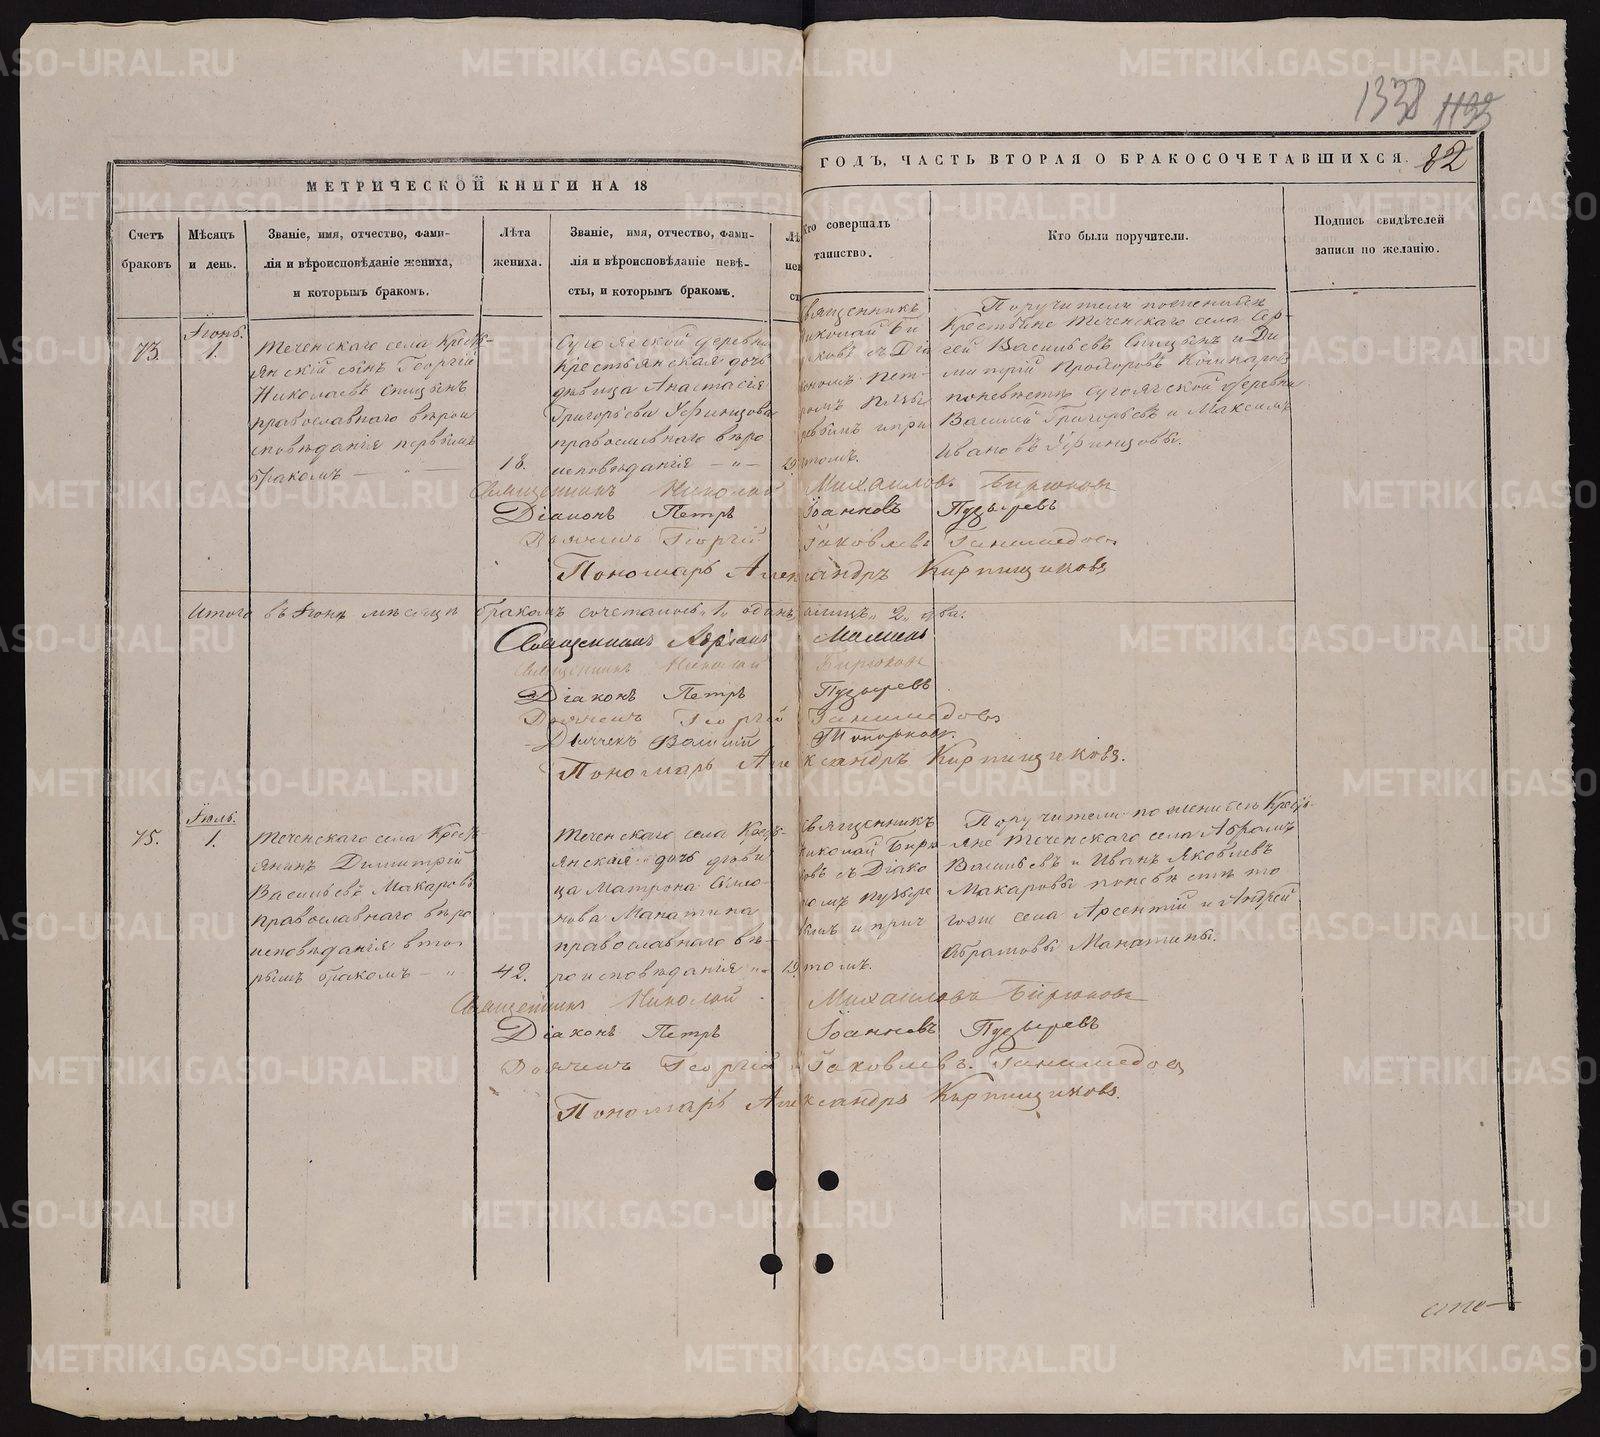 1338 1133
МЕТРИЧЕСКОЙ КНИГИ НА 18
ГОДЪ, ЧАСТЬ ВТОРАЯ О БРАКОСОЧЕТАВШИХСЯ. 82
Счетъ
браковъ
Мѣсяцъ
и день.
Званіе, имя, отчество, фами-
лія и вѣроисповѣданіе жениха,
и которымъ бракомъ.
Лѣта
жениха.
Званіе, имя, отчество, фами-
лія и вѣроисповѣданіе невѣ-
сты, и которымъ бракомъ.
Лѣ
нев
ст
кто совершалъ
таинство.
Кто были поручители.
Подпись свидѣтелей
записи по желанію.
73.
Іюнь.
1.
Теченскаго села Кресть-
янскій сынъ Георгій
Николаевъ Спицынъ
православнаго вѣрои
сповѣданія первымъ
бракомъ — " —
18.
Сугоякской деревни
Крестьянская дочь
дѣвица Анастасія
Григорьева Уфинцова
православнаго вѣро
исповѣданія — " —
19
вященникъ
иколай Би
юковъ съ Діа
кономъ Пет-
ромъ Пузы
ревымъ и при
томъ.
Поручители по женихѣ
Крестьяне Теченскаго села Сер-
гей Васильевъ Спицынъ и Ди
митрій Прохоровъ Кокшаровъ
по невѣстѣ Сугоякской деревни
Василій Григорьевъ и Максимъ
Ивановъ Уфинцовы.
Священникъ Николай Михаиловъ Бирюковъ
Діаконъ Петръ Іоанновъ Пузыревъ
Дьячекъ Георгій Іаковлевъ Ганимедовъ
Пономарь Александръ Кирпищиковъ
Итого въ Іюнѣ мѣсяцѣ бракомъ сочеталось „1„ одинъ, лицъ „2„ два.
Священникъ Мамин
Священникъ Николай Бирюковъ
Діаконъ Петръ Пузыревъ
Дьячекъ Георгій Ганимедовъ
Дьячекъ Василій Топорковъ.
Пономарь Александръ Кирпищиковъ.
75.
Іюль.
1.
Теченскаго села Кресть
янинъ Димитрій
Васильевъ Макаровъ
православнаго вѣро
исповѣданія вто-
рымъ бракомъ — "
42.
Теченскаго села Кресть-
янская дочь дѣви
ца Матрона Симо-
нова Манатина
православнаго вѣ-
роисповѣданія "
19
вященникъ
иколай Бирю
ковъ съ Діако
номъ Пузыре
вымъ и прич
томъ.
Поручители по женихѣ Кресть
яне Теченскаго села Абрамъ
Васильевъ и Иванъ Яковлевъ
Макаровы по невѣстѣ то
гоже села Арсентій и Андрей
Абрамовы Манатины.
Священникъ Николай Михаиловъ Бирюковъ
Діаконъ Петръ Іоанновъ Пузыревъ
Дьячекъ Георгій Іаковлевъ Ганимедовъ
Пономарь Александръ Кирпищиковъ.
METRIKI.GASO-URAL.RU